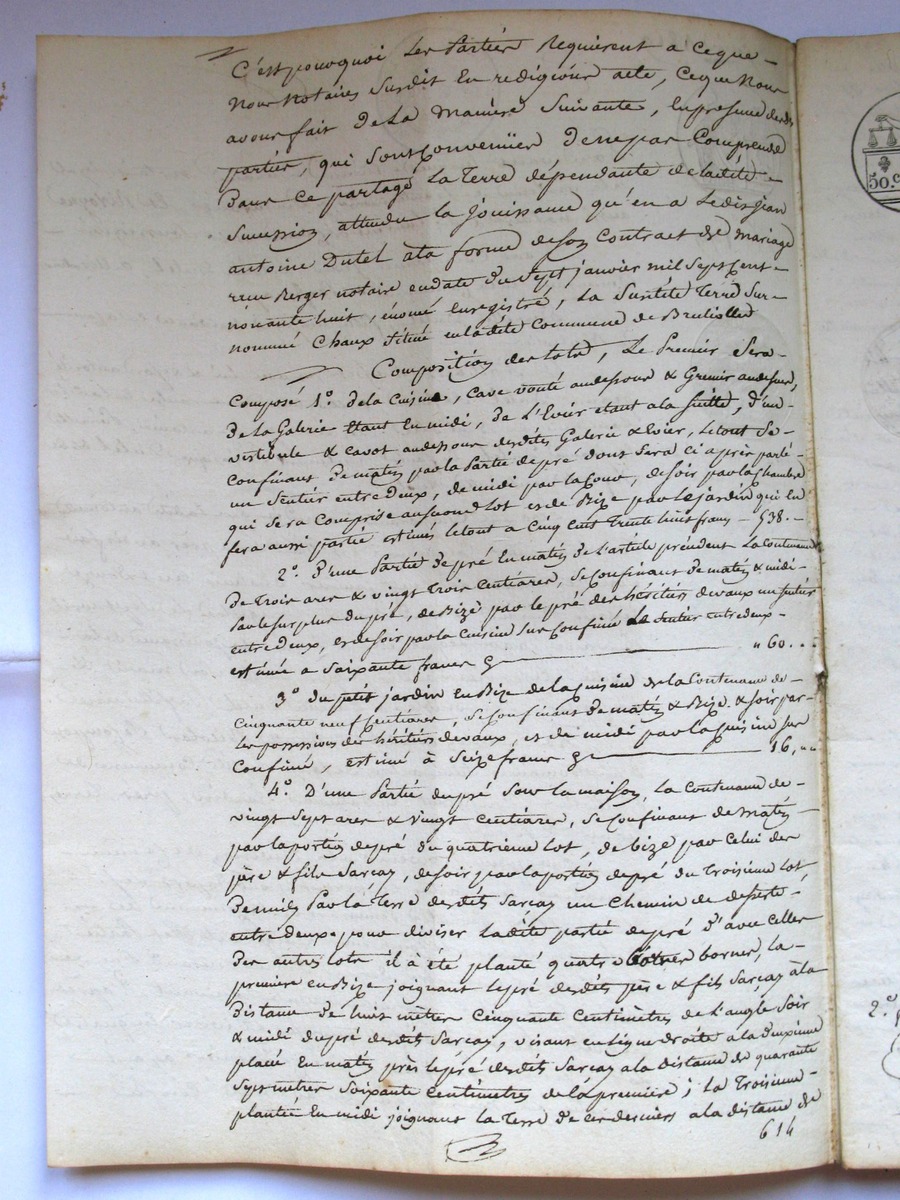 C'est pourquoi les Parties Requierent a ce que
Nous Notaires Susdit En redigions acte, Ce que Nous
avons fait De La Maniere Suivante, En presence desdits
parties, qui Sont Convenües De ne pas Comprendre
Dans Ce partage La Terre dépendante de ladite
Succession, attendu la jouissance qu'en a Ledit jean
antoine Dutel a la forme de Son Contract de Mariage
reçu Berger notaire en date du Sept janvier mil Sept Cent
nonante huit, énoncé Enregistré, La Susdite Terre Sur-
nommé Chaux Située en ladite Commune de Brullioles
Composition des lots, Le Premier Sera
Composé 1.° de la Cuisine, Cave vouté au dessous & Grenier au dessus,
De La Galerie Etant En midi, De L'Evier etant a la Suitte, d'un
vestibule & cavot au dessous desdites Galerie & Evier, le tout Se
Confinant De matin par la Partie de pré dont Sera Ci après parlé
un Sentier entre Deux, de midi par la Cour, de Soir par la Chambre
qui Sera Comprise au Second lot et de Bize par le jardin qui En
fera aussi partie estimés le tout a Cinq Cent Trente huit francs — 538. —
2.° D'une Partie De pré En matin de L'article précédent La Contenance
De Trois ares & vingt Trois Centiares, Se Confinant De matin & midi
Par le Surplus du pré, de Bize par le pré des héritiers devaux un Sentier
entre Deux, et de Soir par la Cuisine Sus Confiné Le Sentier entre deux
estimée a Soixante francs " 60. ...
3° du petit jardin En Bize de la Cuisine de la Contenance de
Cinquante neuf Centiares, Se Confinant De matin & Bize & Soir par
les possessions des héritiers devaux, et de midi par la Cuisine Sus
Confiné, estimé à Seize francs 16, ...
4.° D'une Partie de pré Sous la maison, la Contenance de
vingt Sept ares & vingt Centiares, Se Confinant de matin
par la portion de pré du quatrieme lot, de bize par Celui des
père & fils Sarcay, de Soir par la portion de pré du Troisieme lot,
De midi Par la Terre desdits Sarcay un Chemin de desserte
entre deux pour diviser ladite partie de pré D'avec Celles
Des autres lots il à été planté quatre bornes, la
premiere en Bize joignant le pré desdits père & fils Sarcay à la
Distance De huit mètres Cinquante Centimètres de L'angle Soir
& midi du pré desdits Sarcay, visant en Ligne droite a la Deuxieme
placé En matin près le pré desdits Sarcay a la distance de quarante
Sept metres Soixante Centimètres de la premiere; la Troisieme
plantée En midi joignant la Terre de ces derniers a la distance de
614
50.c
2.°